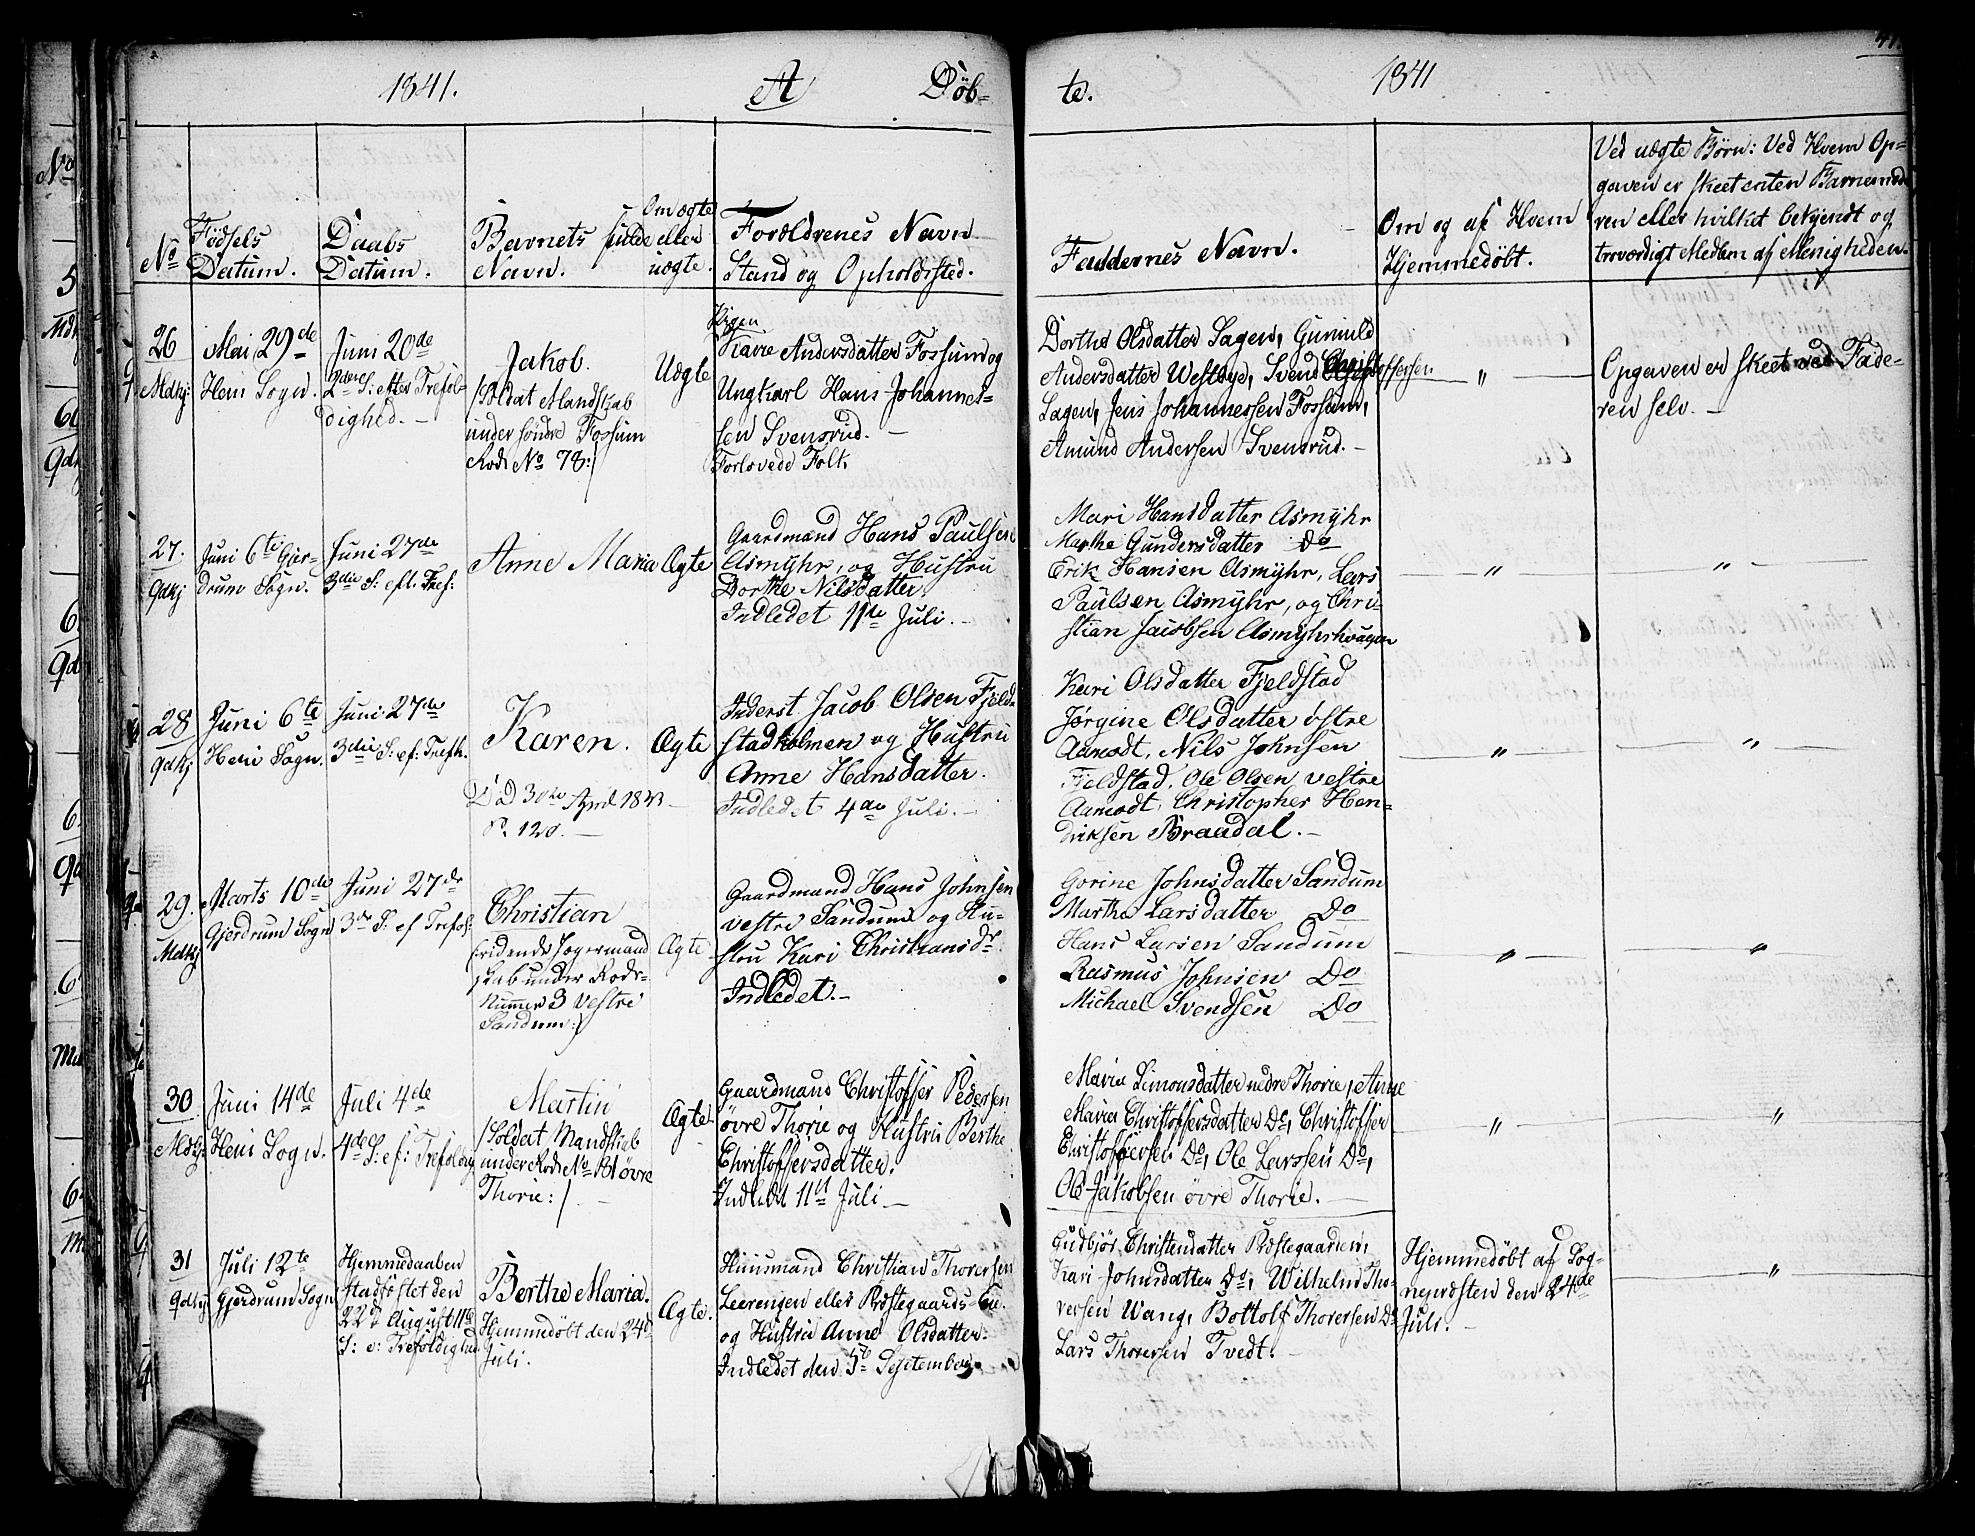 1841. A Døb-
te. 1841
No
Fødsels
Datum.
Daabs
Datum.
Barnets fulde
Navn.
Om ægte
eller
uægte.
Forældrenes Navn
Stand og Opholdssted.
Faddernes Navn.
Om og af Hvem
Hjemmedøbt.
Ved uægte Børn: Ved Hvem Op-
gaven er skeet enten Barnemod
ren eller hvilket bekjendt og
troværdigt Medlem af Menigheden.
26
Mdkj:
Mai 29de
Heni Sogn.
Juni 20de
2den S: efter Trefol-
dighed. -
Jakob.
/Soldat Mandskab
under søndre Fossum
Rode No 78:/
Uægte
Pigen
Karie Andersdatter Fossum og
Ungkarl Hans Johannes-
sen Svensrud. -
Forlovede Folk.
Dorthe Olsdatter Sagen, Gunnild
Andersdatter Westbye, Svend Christoffersen
Sagen, Jens Johannessen Fossum,
Amund Andersen Svensrud. -
"
Opgaven er skeet ved Fade-
ren selv. -
27.
Qdkj
Juni 6te Gjer-
drum Sogn.
Juni 27de
3die S: eft. Tref:
Anne Maria
Ægte
Gaardmand Hans Paulsen
Asmyhr, og Hustru
Dorthe Nilsdatter.
Indledet 11te Juli. -
Mari Hansdatter Asmyhr
Marthe Gundersdatter Do
Erik Hansen Asmyhr, Lars
Paulsen Asmyhr, og Chri-
stian Jacobsen Asmyhrhaugen
"
"
28
Qdkj
Juni 6te
Heni Sogn.
Juni 27de
3die S: ef: Trefh.
Karen.
Død 30te April 18
N. 120. -
Ægte
Inderst Jacob Olsen Fjeld-
stadholmen og Hustru
Anne Hansdatter.
Indledet 4de Juli. -
Kari Olsdatter Fjeldstad
Jørgine Olsdatter østre
Aamodt, Nils Johnsen
Fjeldstad, Ole Olsen vestre
Aamodt, Christopher Hen-
driksen Braadal. -
"
"
29.
Mdkj
Marts 10de
Gjerdrum Sogn
Juni 27de
3die S: ef Trefol:
Christian
(ridende Jægermand
skab under Rode-
Nummer 3 vestre
Sandum:)
Ægte
Gaardmand Hans Johnsen
vestre Sandum og Hu-
stru Kari Christiansdr.
Indledet. -
Gorine Johnsdatter Sandum
Marthe Larsdatter Do
Hans Larsen Sandum
Rasmus Johnsen Do
Michael Svendsen Do
"
"
30
Mdkj:
Juni 14de
Heni Sogn.
Juli 4de
4de S: ef: Trefoldig
Martin
/Soldat Mandskab
under Rode No øvre
Thorie:/
Ægte
Gaardmand Christoffer Pedersen
øvre Thorie og Hustru Berthe
Christoffersdatter.
Indledet 11te Juli -
Maria Simonsdatter nedre Thorie, Anne
Maria Christoffersdatter Do, Christoffer
Christoffersen Do, Ole Larssen Do,
Ole Jakobsen øvre Thorie. -
"
"
31
Qdkj
Juli 12te
Gjerdrum Sogn
Hjemmedaaben
stadfæstet den
22de August 11te
S: e: Trefoldighed
Berthe Maria.
Hjemmedøbt den 24de
Juli.
Ægte.
Huusmand Christian Thoresen
Leerengen eller Præstegaards-Eie.
og Hustru Anne Olsdatter.
Indledet den 5te September.
Gudbjør Christendatter Præstegaarden,
Kari Johnsdatter Do, Wilhelm Tho-
versen Wang, Bottolf Thoversen Do
Lars Thoresen Tvedt. -
Hjemmedøbt af Sog-
nepræsten den 24de
Juli. -
"